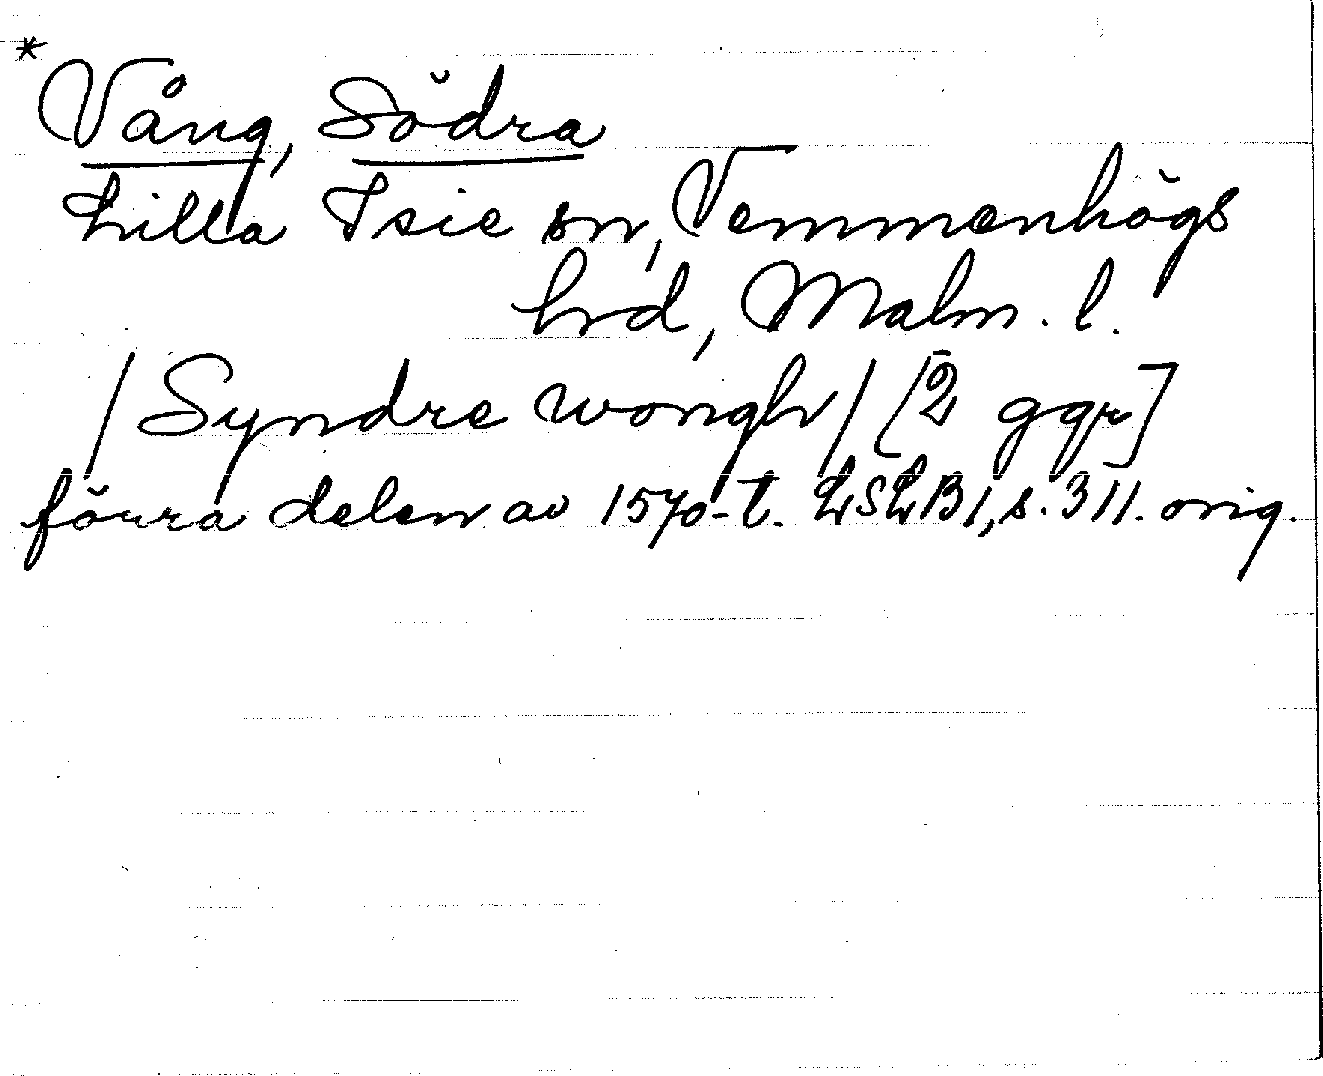 * Vång, Södra
Lilla Isie sn, Vemmenhögs
hrd, Malm. l.
/Syndre wongh/ [2 ggr]
förra delen av 1570-t. LSLB1, s. 311. orig.